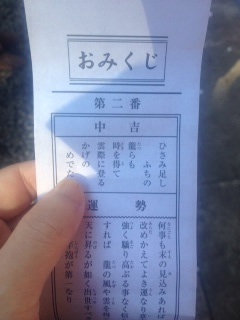 おみくじ
第二番
中吉
ひさみ足し
ふちの
龍らも
時を得て
雲際に登る
かげの
めでた
運勢
何事も末の見込みあれば
改めかえてよき運なり
強く驕り高ぶる事なく
すれば 龍の風や雲を
天に昇るが如く出世す